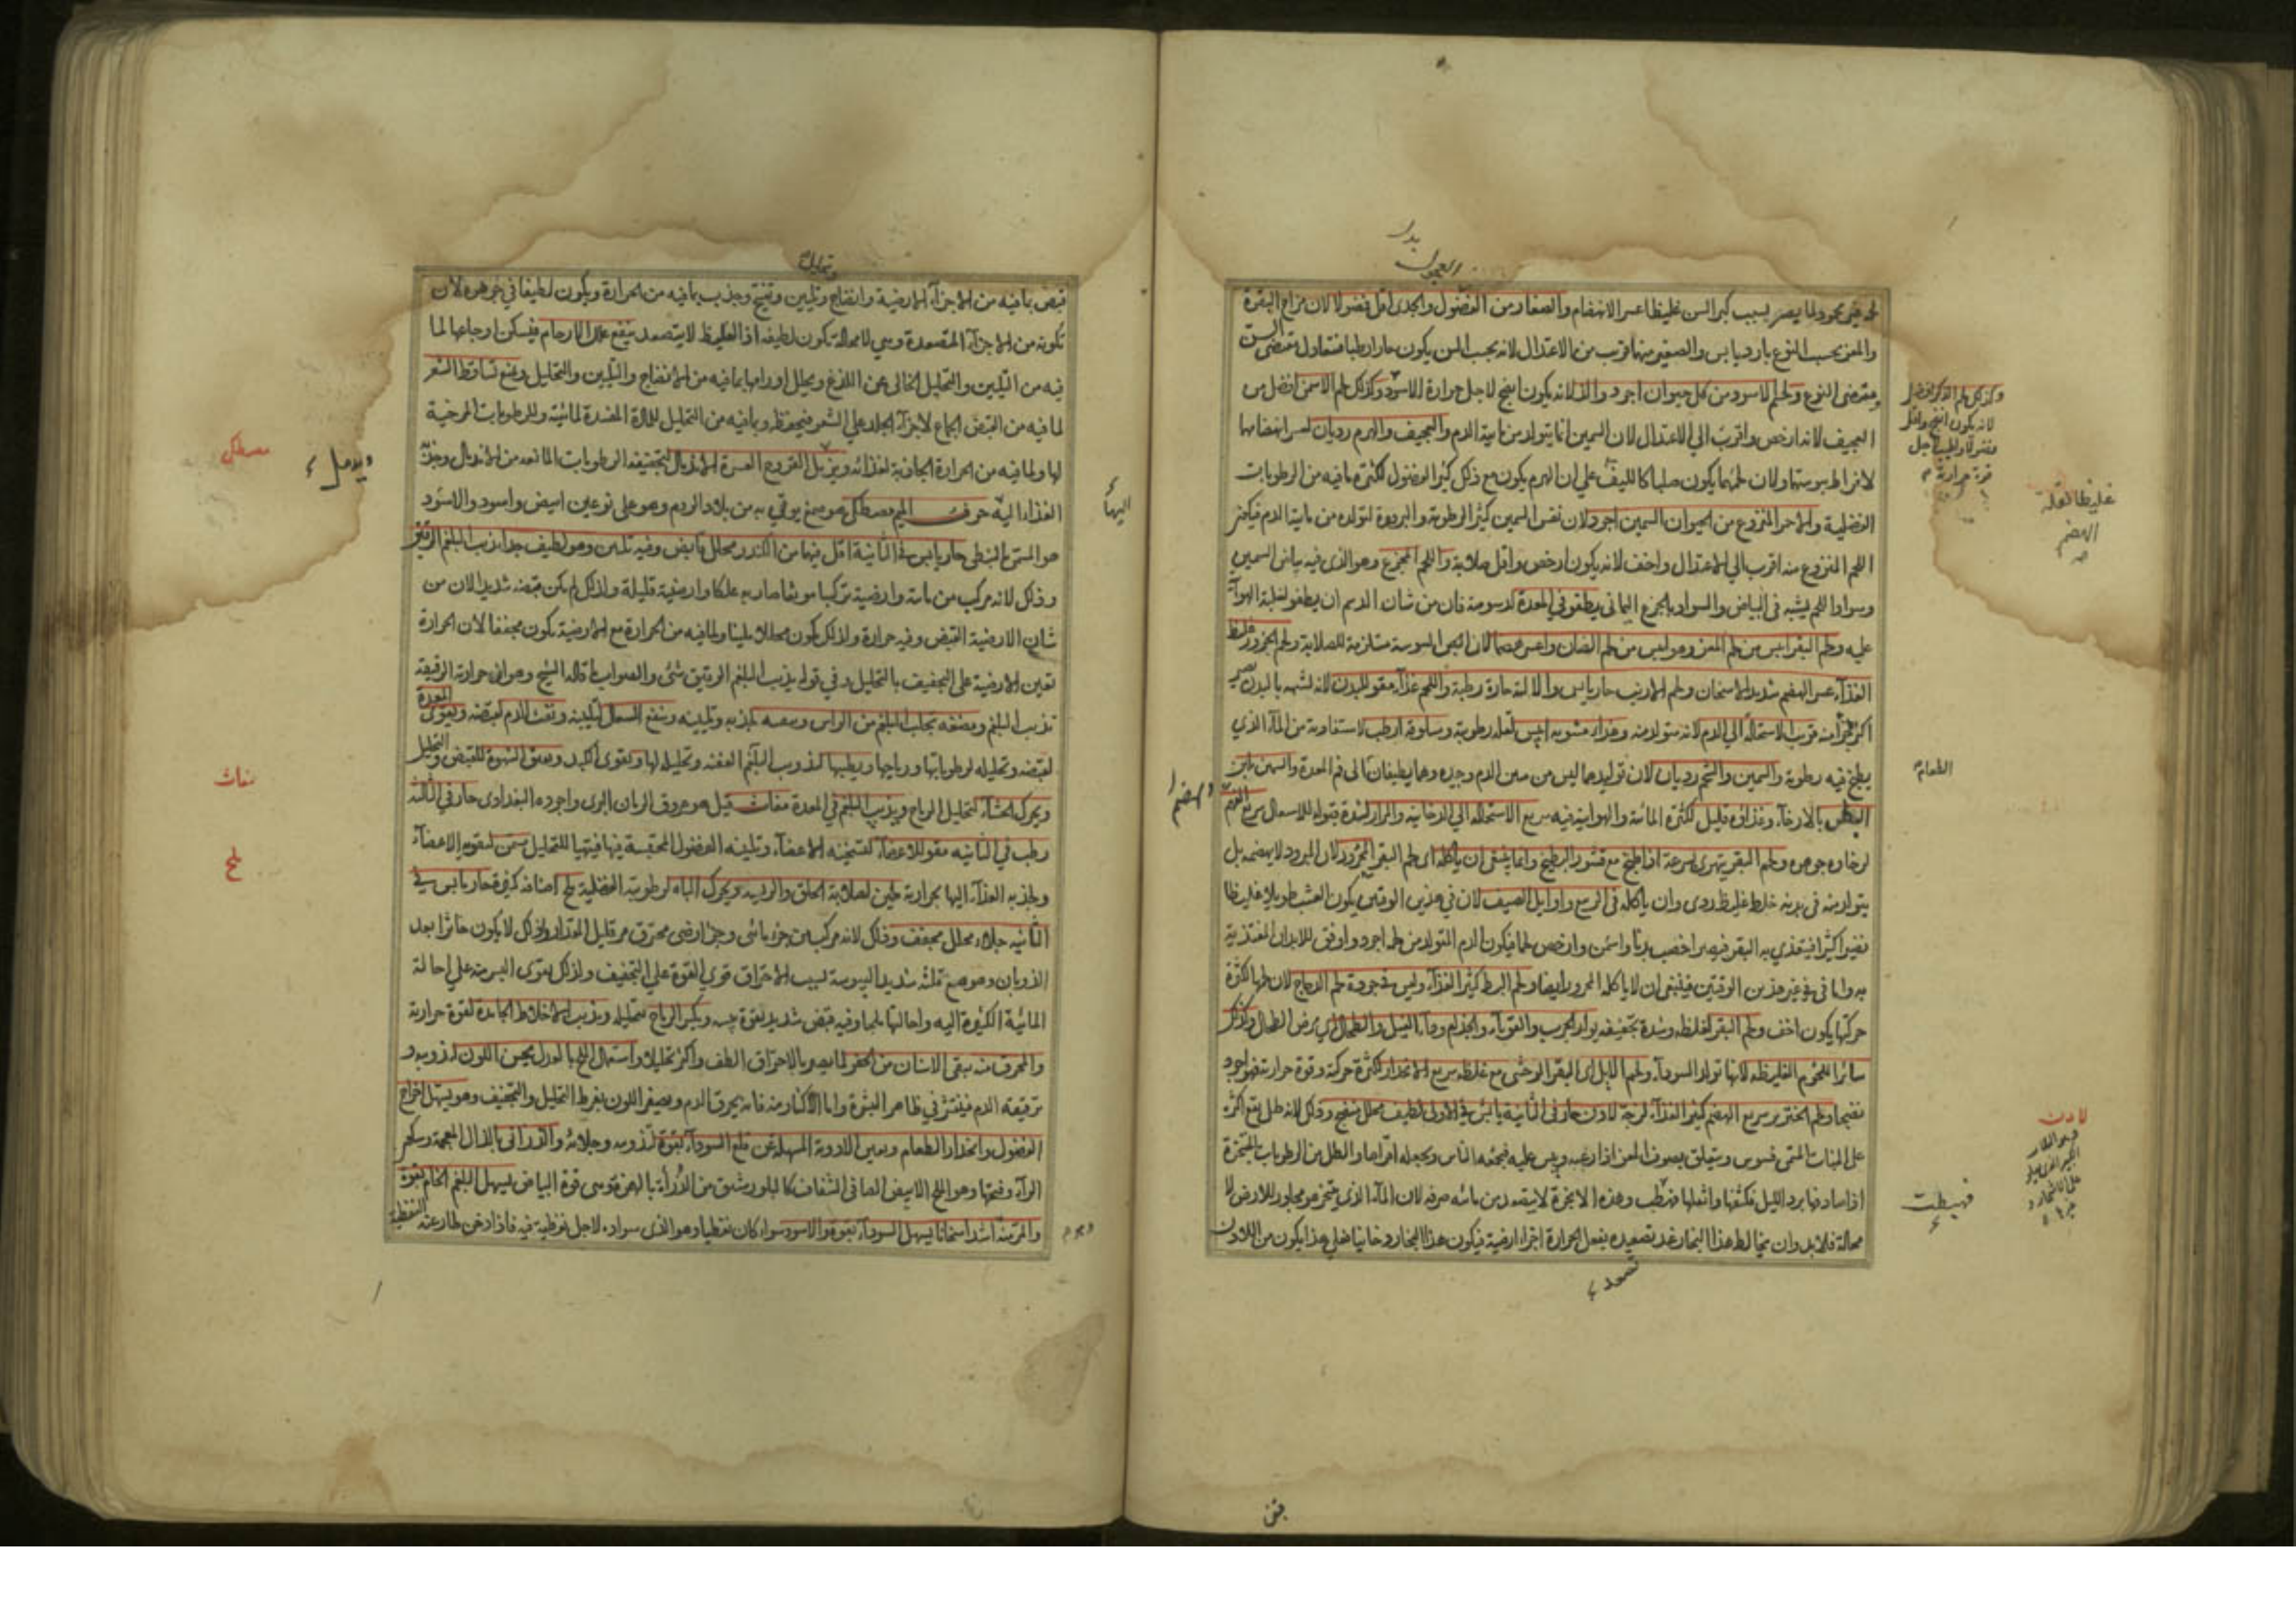 لحمه غير محمود لما يصير بسبب كبر السن غليظا عسر الانهضام والصغار من العجول والجدى اقل فضولا لان مزاج البقرة
والمعز بحسب النوع بارد يابس والصغير منها قرب من الاعتدال لانه بحسب السن يكون حارا رطبا فتعادل مقتضى السن
ومقتضى النوع ولحم الاسود من كل حيوان اجود والذ لانه يكون انضج لاجل حرارة الاسود وكذلك لحم الاسمن افضل من
العجيف لانه ارخص واقرب الى الاعتدال لان السمين انما يتولد من مائية الدم والعجيف والهرم رديان لعسر انهضامها
لافراط يبوستها ولان لحمهما يكون صلبا كالليف على ان الهرم يكون مع ذلك كثير الفضول لكثرة ما فيه من الرطوبات
الفضلية والاحمر المنزوع من الحيوان السمين اجود لان نفس السمين كثير الرطوبة والبرودة لتولده من مائية الدم فيكون
اللحم المنزوع منه اقرب الى الاعتدال واخف لانه يكون ارخص واقل صلابة واللحم المجزع وهو الذى فيه بياض السمين
وسواد اللحم يشبه فى البياض والسواد بالجزع اليمانى يطفو فى المعدة لدسومته فان من شان الدسم ان يطفو لغلبة الهوآء
عليه ولحم البقر ايبس من لحم المعز وهو ايبس من لحم الضان واعسر هضما لان اليبوسة مستلزمة للصلابة ولحم الجزور غليظ
الغذآء عسر الهضم شديد الاسخان ولحم الارنب حار يابس والالية حارة رطبة واللحم غذآء مقو للبدن لانه لشبهه بالبدن يصير
اكثر جزأ منه قريب الاستحالة الى الدم لانه متولد منه وغذاء مشويه ايبس لقلة رطوبته ومسلوقه ارطب لاستفادته من المآء الذى
يطبخ فيه رطوبة والسمين والشحم رديان لان تولدهما ليس من متين الدم وجيده وهما يطفيان الى فم المعدة والسمين يلين
البطن بالارخآء وغذاؤه قليل لكثرة المائية والهوائية فيه سريع الاستحالة الى الدخانية والمرار
لرخاوة جوهره ولحم البقر يتهرى بسرعة اذا طبخ مع قشور البطيخ وانما ينبغى ان ياكله اى لحم البقر المحرور لان المبرود لا يهضمه بل
يتولد منه فى بدنه خلط غليظ ردى وان ياكله فى الربيع واوايل الصيف لان فى هذين الوقتين يكون العشب طويلا غليظا
نضيرا كثيرا فيغتذى به البقر فيصير اخصب بدنا واسمن وارخص لحما فيكون الدم المتولد من لحمه اجود واوفق للابدان المغتذية
به واما فى غير هذين الوقتين فينبغى ان لا ياكله المحرور ايضا ولحم البط كثير الغذآء وليس فى جودة لحم الدجاج لان لحمها لكثرة
حركتها يكون اخف ولحم البقر لغلظه وشدة تجفيفه يولد الجرب والقوبآء والجذام ودآء الفيل والطحال اى مرض الطحال وكذلك
سائر اللحوم الغليظة لانها تولد السودآء ولحم الايل اى البقر الوحشى مع غلظه سريع الانحدار لكثرة حركته وقوة حرارته فهو اجود
نضجا ولحم الخنزير سريع الهضم كثير الغذآء لزجه لادن حار فى الثانية يابس فى الاولى لطيف محلل منضج وذلك لانه طل يقع اكثره
على النبات المسمى قسوس ويتعلق بصوف المعز اذا رعته ويلبس عليه فيجمعه الناس ويجعله اقراصا والطل من الرطوبات المتبخرة
اذا صادفها برد الليل فكثفها واثقلها فهبطت وهذه الابخرة لا يتصعد من مائية صرفة لان المآء الذى يتبخر هو مجاور للارض فلا
محالة فلا بد وان يخالط هذا البخار عند تصعيده بفعل الحرارة اجزاء ارضية فيكون هذا البخار دخانيا فعلى هذا يكون من اللادن
وكذلك لحم الذكر افضل
لانه يكون انضج واقل
فضولا واطيب لاجل
قوة حرارته
غليظا لقلة
الهضم
الطعام
لادن
فهبطت
تصعد
قبض بما فيه من الاجزآء الارضية وانضاج وتليين وتفتيح وجذب بما فيه من الحرارة ويكون لطيفا فى جوهره لان
وتحليل
تكونه من الاجزآء المتصعدة وهى لا محالة تكون لطيفة اذ الغليظ لا يتصعد ينفع علل الارحام فيسكن اوجاعها لما
فيه من التليين والتحليل الخالى عن اللذغ ويحلل اورامها بما فيه من الانضاج والتليين والتحليل ويمنع تساقط الشعر
لما فيه من القبض الجامع لاجزآء الجلد على الشعر فيحفظه وبما فيه من التحليل للمادة المفسدة لمائيته وللرطوبات المرخية
لها ولما فيه من الحرارة الجاذبة لغذائه ويزيل القروح العسرة الاندمال لتجفيفه الرطوبات المانعة من الاندمال وجذبه
الغذاء اليه حرف الميم مصطكى هو صمغ يوتى به من بلاد الروم وهو على نوعين ابيض واسود والاسود
هو المسمى بالنبطى حار يابس فى الثانية اقل فيهما من الكندر محلل قابض وفيه تليين وهو لطيف جدا يذيب البلغم الرقيق
وذلك لانه مركب من مائية وارضية تركبا موثقا صار به علكا وارضيته قليلة ولذلك لم يكن قبضه شديدا لان من
شان الارضية القبض وفيه حرارة ولذلك يكون محللا ملينا ولما فيه من الحرارة مع الارضية يكون مجففا لان الحرارة
تعين الارضية على التجفيف بالتحليل وفى قوله يذيب البلغم الرقيق شئ والصواب ما قاله الشيخ وهو ان حرارته الرقيقة
تذيب البلغم ومضغه يجلب البلغم من الراس وينقيه لجذبه وتليينه وينفع السعال لتليينه ونفث الدم لقبضه ويقوى المعدة
لقبضه وتحليله لرطوباتها ورياحها ويطيبها لذوب البلغم العفن وتحليله لها ويقوى الكبد ويفتق الشهوة للقبض والتحليل
ويحرك الجشآء لتحليل الرياح ويذيب البلغم فى المعدة مغاث قيل هو عروق الرمان البرى واجوده البغدادى حار فى الثالثة
رطب فى الثانية مقو للاعضآء لتسخينه الاعضآء وتليينه الفضول المحتبسة فيها فيتهيا للتحليل يسمن لتقويته الاعضآء
ولجذبه الغذآء اليها بحرارته يلين لصلابة الحلق والرئة ويحرك الباه لرطوبته الفضلية ملح اصنافه كثيرة حار يابس فى
الثانية جلاء محلل مجفف وذلك لانه مركب من جزء مائى وجزء ارضى محترق مر قليل المقدار ولذلك لا يكون خاثرا بعد
الذوبان وهو مع قلته شديد اليبوسة لسبب الاحتراق قوى القوة على التجفيف ولذلك يقوى اليسير منه على احالة
المائية الكثيرة اليه واحالتها ملحا وفيه قبض شديد لقوة يبسه ويكسر الرياح لتحليله ويذيب الاخلاط الجامدة لقوة حرارته
والمحرق منه ينقى الاسنان من الحفر لما يصير بالاحتراق الطف واكثر تحليلا واستعمال الملح بالعدل يحسن اللون لذوبه و
ترقيقه الدم فينتشر فى ظاهر البشرة واما الاكثار منه فانه يحرق الدم ويصفر اللون بفرط التحليل والتجفيف وهو يسهل اخراج
الفضول وانحدار الطعام ويعين الادوية المسهلة على قلع السودآء لقوة تذويبه وجلائه والذرانى بالذال المعجمة وسكون
الرآء وفتحها وهو الملح الابيض الصافى الشفاف كالبلور مشتق من الذرأة بالهمزة وهى قوة البياض يسهل البلغم الخام بقوة
والمر منه اشد اسخانا يسهل السودآء بقوة والاسود سواء كان نفطيا وهو الذى سواده لاجل نفطية فيه فاذا دخن طار عنه النفطية
مصطكى
ويدمل
اليها
مغاث
ملح